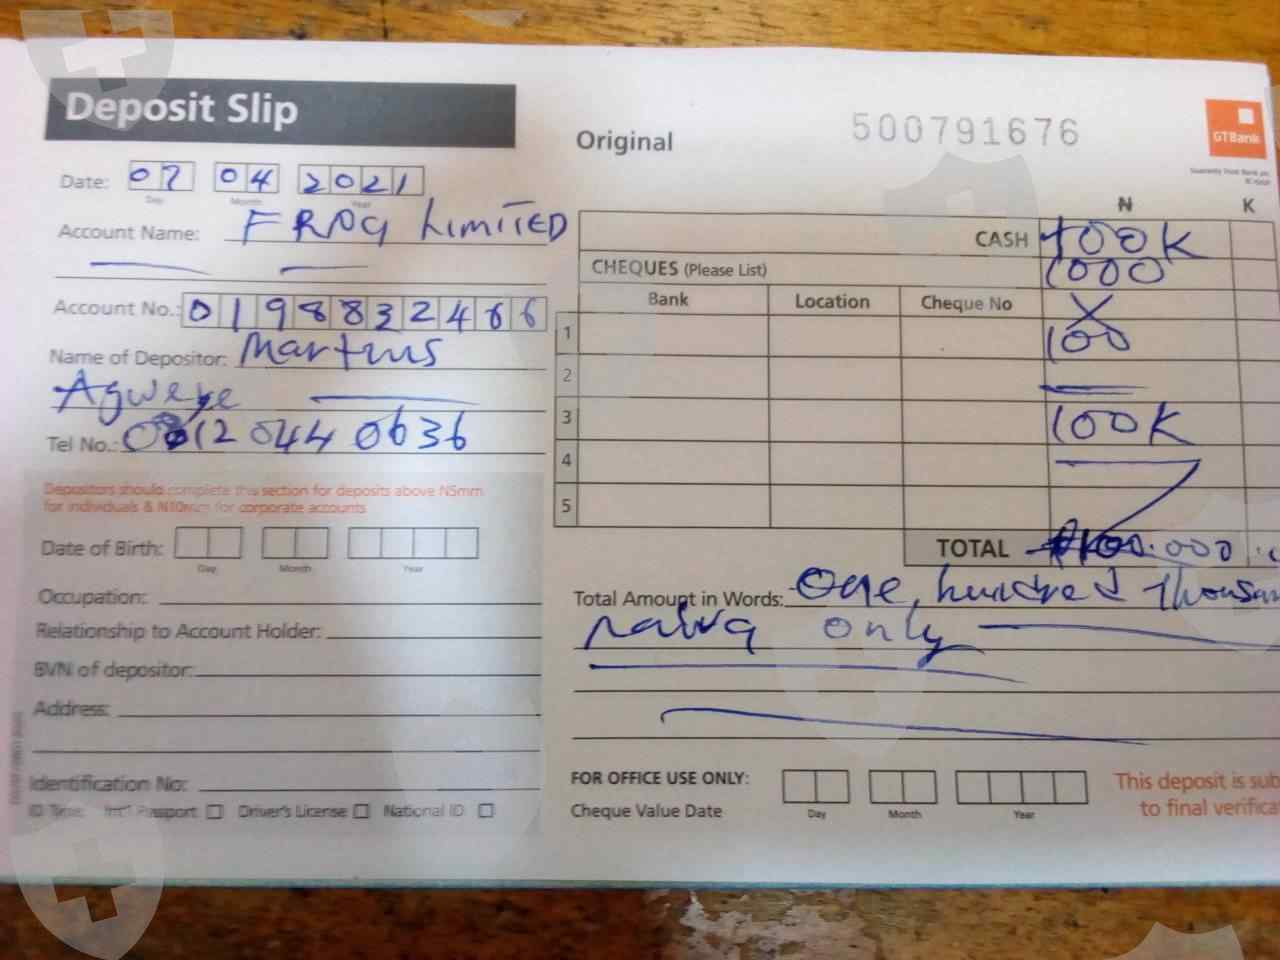 Deposit Slip
Original
500791676
GTBank
Guaranty Trust Bank plc
Date: 07 04 2021
Day Month Year
Account Name: FROG LIMITED
Account No.: 0198832466
Name of Depositor: Martins
Agweye
Tel No.: 0812 044 0636
Depositors should complete this section for deposits above N5mm
for individuals & N10mm for corporate accounts
Date of Birth:
Day Month Year
Occupation:
Relationship to Account Holder:
BVN of depositor:
Address:
Identification No:
ID Type: Int'l Passport Driver's License National ID
N K
CASH 100K
CHEQUES (Please List) 1000
Bank Location Cheque No X
1 100
2
3 100K
4
5
TOTAL 100.000
Total Amount in Words: One hundred Thousan
naira only
FOR OFFICE USE ONLY:
Cheque Value Date
Day Month Year
This deposit is sub
to final verifica